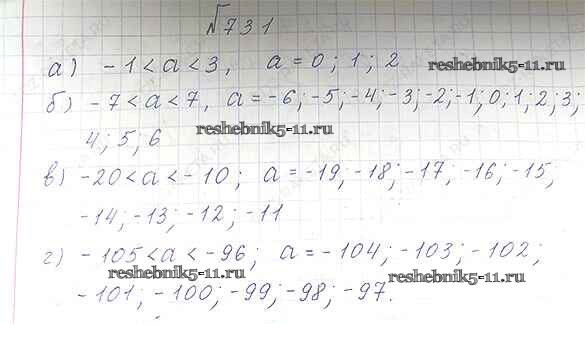 №731
а) -1 < a < 3, a = 0; 1; 2 reshebnik5-11.ru
б) -7 < a < 7, a = -6; -5; -4; -3; -2; -1; 0; 1; 2; 3;
4; 5; 6 reshebnik5-11.ru
в) -20 < a < -10; a = -19; -18; -17; -16; -15,
-14; -13; -12; -11
г) -105 < a < -96; a = -104; -103; -102;
reshebnik5-11.ru reshebnik5-11.ru
-101; -100; -99; -98; -97.